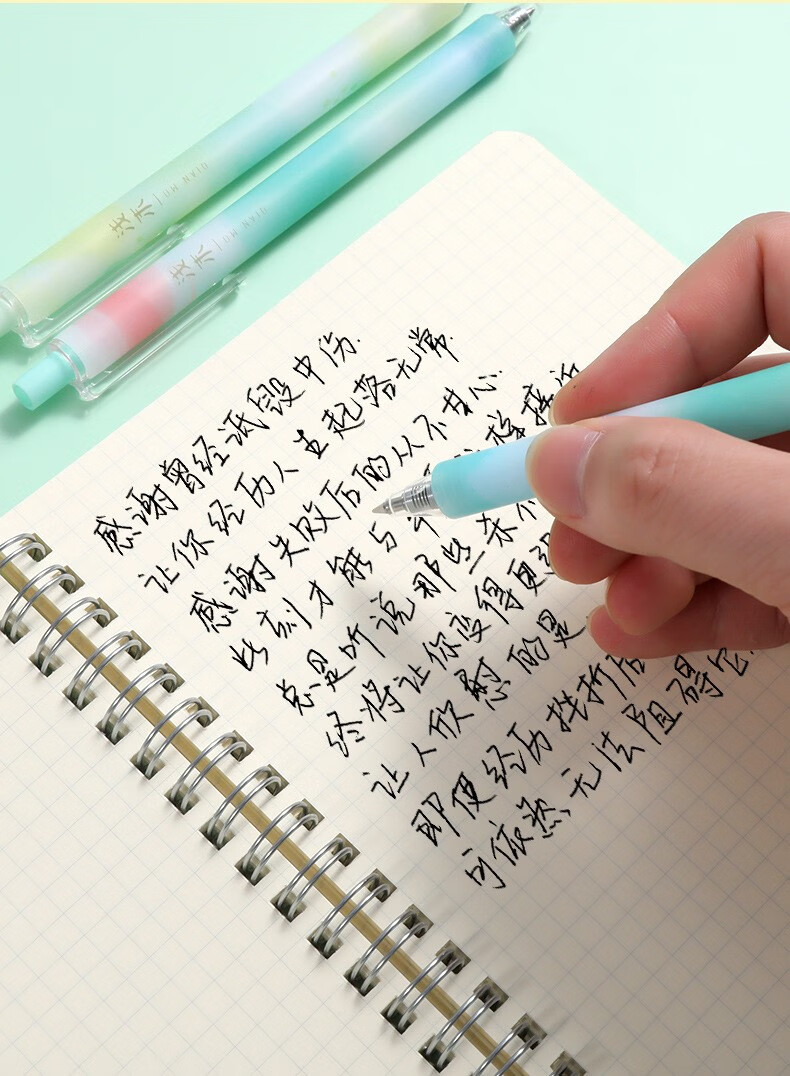 浅末 | QIAN MO
浅末 | QIAN MO
感谢曾经诋毁中伤.
让你经历人生起落无常.
感谢失败后的从不甘心.
此刻才能与
总是听说那些杀不
终将让你变得更强
让人欣慰的是
即便经历挫折后
可依然无法阻碍它.